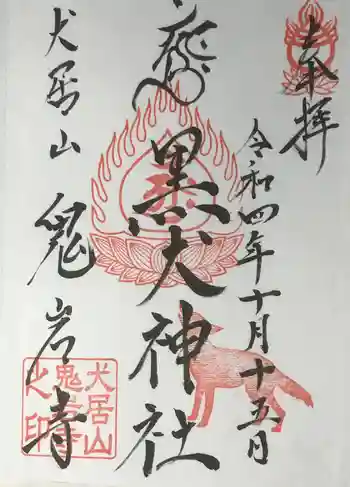 奉拝
令和四年十月十五日
黒犬神社
犬居山
鬼岩寺
犬居山
鬼岩寺
之印